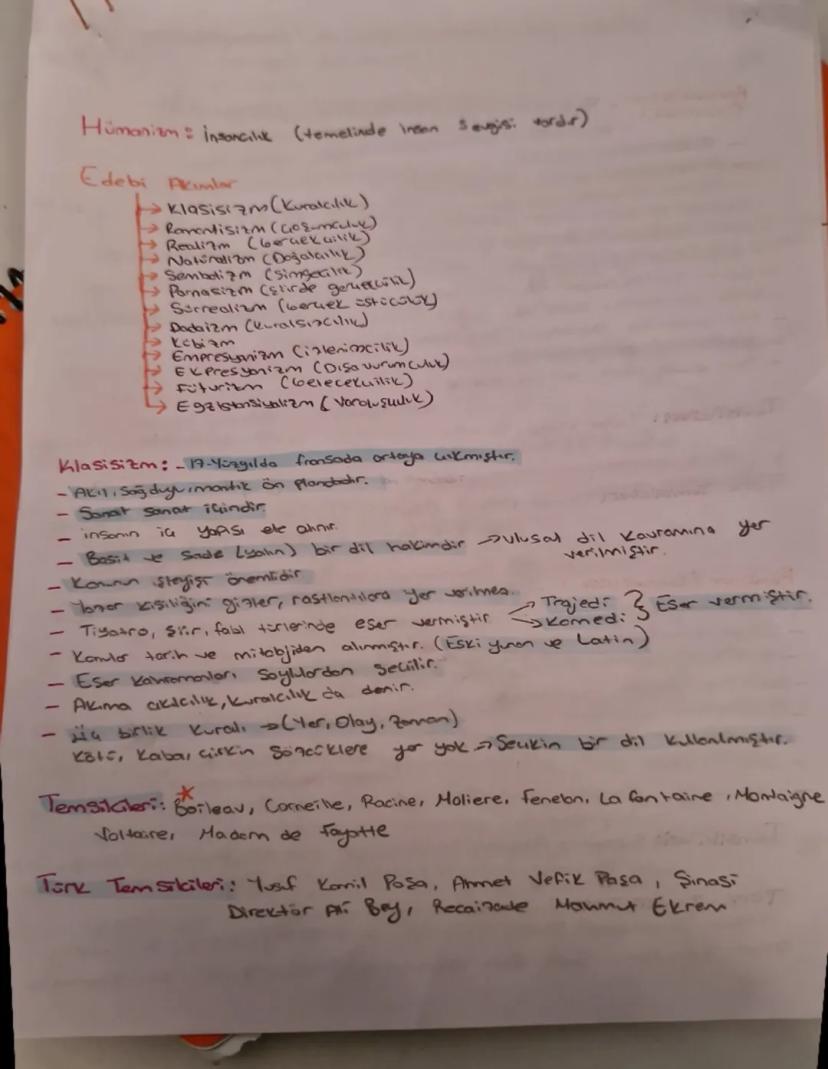 Hümanizm: İnsancılık (temelinde insan sevgisi vardır)
Edebi Akımlar
→ Klasisizm (Kuralcılık)
→ Romantisizm (Coşumculuk)
→ Realizm (Gerçekçilik)
→ Natüralizm (Doğalcılık)
→ Sembolizm (Simgecilik)
→ Parnasizm (Şiirde gerçekçilik)
→ Sürrealizm (Gerçek üstücülük)
→ Dadaizm (Kuralsızcılık)
→ Kübizm
→ Empresyonizm (izlenimcilik)
→ Ekpresyonizm (Dışavurumculuk)
→ Fütürizm (Gelecekçilik)
→ Egzistansiyalizm (Varoluşuluk)
Klasisizm: - 17.Yüzyılda fransada ortaya çıkmıştır.
- Akıl, Sağduyu, mantık ön plandadır.
- Sanat sanat içindir.
- insanın iç yapısı ele alınır.
- Basit ve sade (yalın) bir dil hakimdir → ulusal dil kavramına yer
verilmiştir.
- Konunun işleyişi önemlidir
- Yazar kişiliğini gizler, rastlantılara yer verilmez.
- Tiyatro, şiir, fabl türlerinde eser vermiştir → Trajedi → Komedi } Eser vermiştir.
- Konular tarih ve mitolojiden alınmıştır. (Eski yunan ve Latin)
- Eser kahramanları soylulardan seçilir.
- Akıma akılcılık, kuralcılık da denir.
- üç birlik kuralı → (Yer, Olay, Zaman)
Kötü, Kaba, çirkin sözcüklere yer yok → Seçkin bir dil kullanılmıştır.
Temsilcileri: Boileau, Corneille, Racine, Moliere, Fenelon, La fontaine, Montaigne
Voltaire, Madam de Fayette
Türk Temsilcileri: Yusuf Kamil Paşa, Ahmet Vefik Paşa, Şinasi
Direktör Ali Bey, Recaizade Mahmut Ekrem